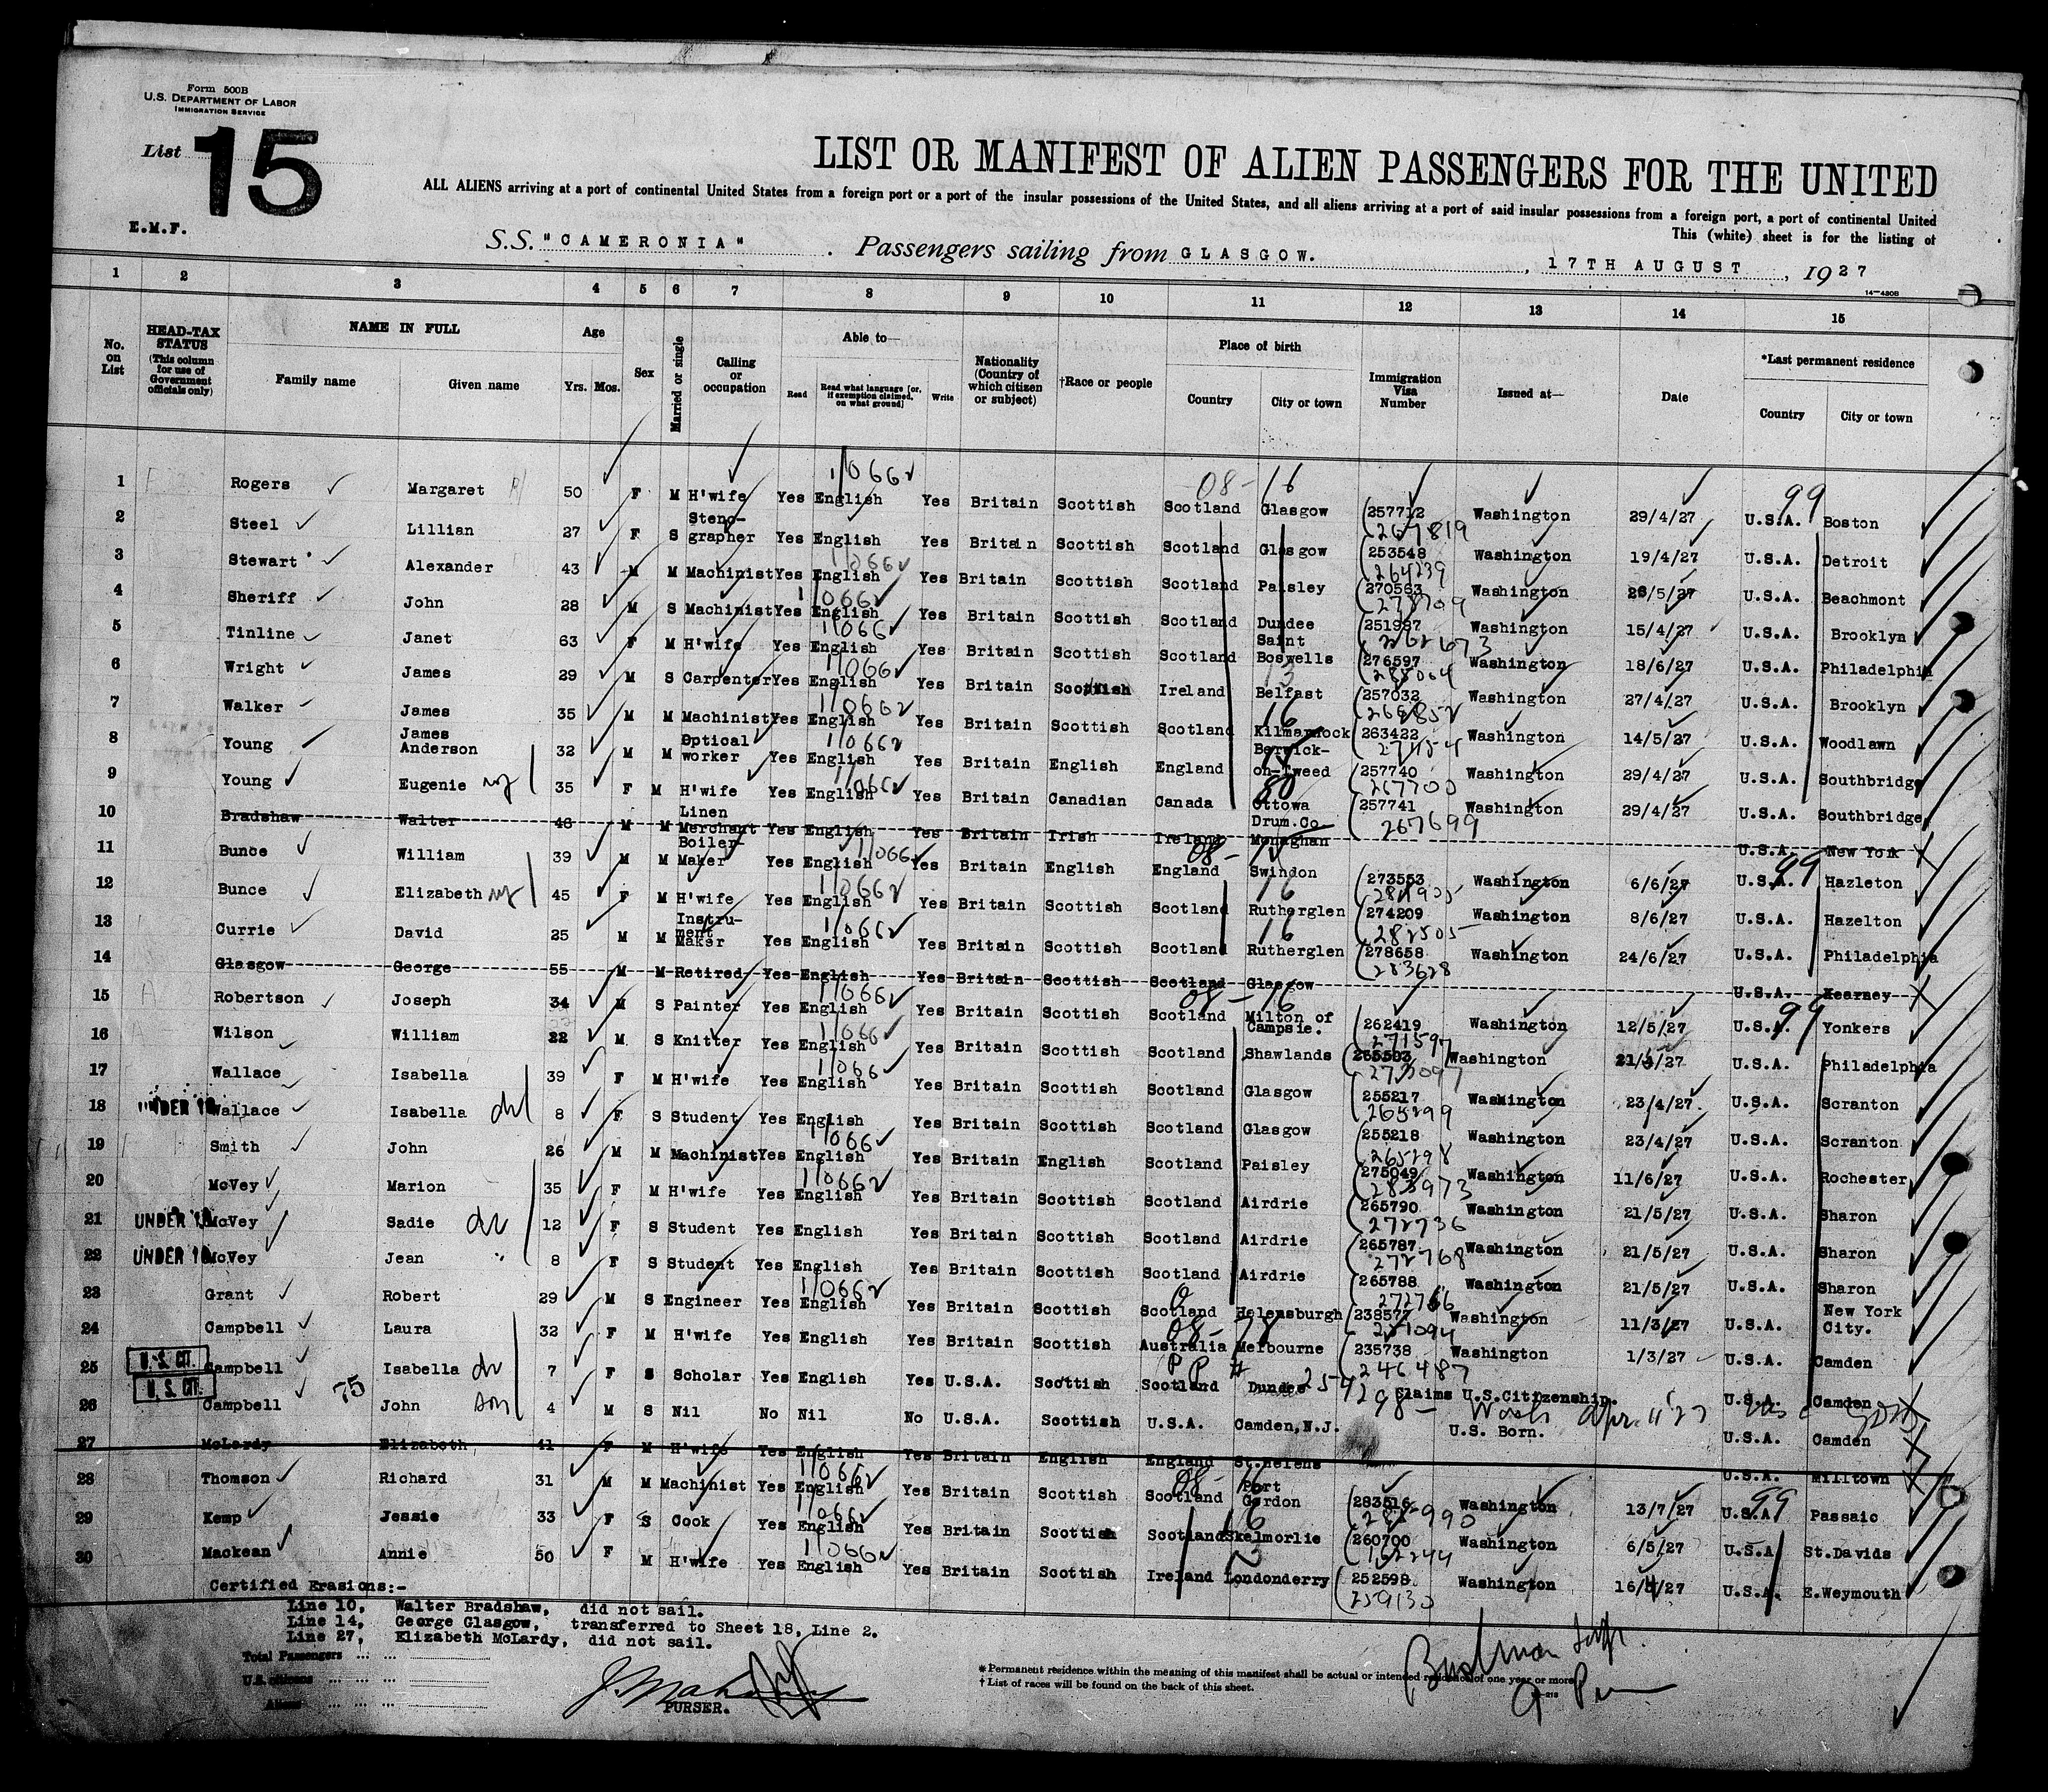 Form 500B
U.S. DEPARTMENT OF LABOR
IMMIGRATION SERVICE
List 15
E.M.F.
LIST OR MANIFEST OF ALIEN PASSENGERS FOR THE UNITED
ALL ALIENS arriving at a port of continental United States from a foreign port or a port of the insular possessions of the United States, and all aliens arriving at a port of said insular possessions from a foreign port, a port of continental United
This (white) sheet is for the listing of
S.S. "CAMERONIA" Passengers sailing from GLASGOW. , 17TH AUGUST , 1927
14-430B
1 2 3 4 5 6 7 8 9 10 11 12 13 14 15
No. on List
HEAD-TAX STATUS (This column for use of Government officials only)
NAME IN FULL Family name Given name
Age Yrs. Mos.
Sex
Married or single
Calling or occupation
Able to— Read Read what language [or, if exemption claimed, on what ground] Write
Nationality (Country of which citizen or subject)
†Race or people
Place of birth Country City or town
Immigration Visa Number
Issued at—
Date
*Last permanent residence Country City or town
1 Rogers Margaret 50 F M H'wife Yes English Yes Britain Scottish Scotland Glasgow 257712 Washington 29/4/27 U.S.A. Boston
2 Steel Lillian 27 F S Steno-grapher Yes English Yes Britain Scottish Scotland Glasgow 267819 253548 Washington 19/4/27 U.S.A. Detroit
3 Stewart Alexander 43 M M Machinist Yes English Yes Britain Scottish Scotland Paisley 264239 270563 Washington 26/5/27 U.S.A. Beachmont
4 Sheriff John 28 M S Machinist Yes English Yes Britain Scottish Scotland Dundee 278709 251987 Washington 15/4/27 U.S.A. Brooklyn
5 Tinline Janet 63 F M H'wife Yes English Yes Britain Scottish Scotland Saint Boswells 262673 276597 Washington 18/6/27 U.S.A. Philadelphia
6 Wright James 29 M S Carpenter Yes English Yes Britain Scottish Ireland Belfast 257032 Washington 27/4/27 U.S.A. Brooklyn
7 Walker James 35 M M Machinist Yes English Yes Britain Scottish Scotland Kilmarnock 263422 Washington 14/5/27 U.S.A. Woodlawn
8 Young James Anderson 32 M M Optical worker Yes English Yes Britain English England Berwick-on-Tweed 257740 Washington 29/4/27 U.S.A. Southbridge
9 Young Eugenie 35 F M H'wife Yes English Yes Britain Canadian Canada Ottowa 267700 257741 Washington 29/4/27 U.S.A. Southbridge
10 Bradshaw Walter 48 M M Linen Merchant Yes English Yes Britain Irish Ireland Drum.Co Monaghan 267699 U.S.A. New York
11 Bunce William 39 M M Boiler-Maker Yes English Yes Britain English England Swindon 273553 Washington 6/6/27 U.S.A. Hazleton
12 Bunce Elizabeth 45 F M H'wife Yes English Yes Britain Scottish Scotland Rutherglen 274209 Washington 8/6/27 U.S.A. Hazelton
13 Currie David 25 M M Instru-ment Maker Yes English Yes Britain Scottish Scotland Rutherglen 282505 278658 Washington 24/6/27 U.S.A. Philadelphia
14 Glasgow George 55 M M Retired Yes English Yes Britain Scottish Scotland Glasgow 283628 U.S.A. Kearney
15 Robertson Joseph 34 M S Painter Yes English Yes Britain Scottish Scotland Milton of Campsie. 262419 Washington 12/5/27 U.S.A. Yonkers
16 Wilson William 22 M S Knitter Yes English Yes Britain Scottish Scotland Shawlands 271597 Washington 21/5/27 U.S.A. Philadelphia
17 Wallace Isabella 39 F M H'wife Yes English Yes Britain Scottish Scotland Glasgow 255217 Washington 23/4/27 U.S.A. Scranton
18 UNDER 16 Wallace Isabella 8 F S Student Yes English Yes Britain Scottish Scotland Glasgow 265299 255218 Washington 23/4/27 U.S.A. Scranton
19 Smith John 26 M M Machinist Yes English Yes Britain English Scotland Paisley 265298 275049 Washington 11/6/27 U.S.A. Rochester
20 McVey Marion 35 F M H'wife Yes English Yes Britain Scottish Scotland Airdrie 283973 265790 Washington 21/5/27 U.S.A. Sharon
21 UNDER 16 McVey Sadie 12 F S Student Yes English Yes Britain Scottish Scotland Airdrie 272736 265787 Washington 21/5/27 U.S.A. Sharon
22 UNDER 16 McVey Jean 8 F S Student Yes English Yes Britain Scottish Scotland Airdrie 272768 265788 Washington 21/5/27 U.S.A. Sharon
23 Grant Robert 29 M S Engineer Yes English Yes Britain Scottish Scotland Helensburgh 272766 238577 Washington 11/3/27 U.S.A. New York City.
24 Campbell Laura 32 F M H'wife Yes English Yes Britain Scottish Australia Melbourne 235738 Washington 1/3/27 U.S.A. Camden
25 U.S. CIT. Campbell Isabella 7 F S Scholar Yes English Yes U.S.A. Scottish Scotland Dundee 246487 Claims U.S.Citizenship. U.S.A. Camden
26 U.S. CIT. Campbell 75 John son 4 M S Nil No Nil No U.S.A. Scottish U.S.A. Camden, N.J. U.S. Born. U.S.A. Camden
27 McLardy Elizabeth 41 F M H'wife Yes English Yes Britain English England St.Helens U.S.A. Milltown
28 Thomson Richard 31 M M Machinist Yes English Yes Britain Scottish Scotland Port Gordon 283516 Washington 13/7/27 U.S.A. Passaic
29 Kemp Jessie 33 F S Cook Yes English Yes Britain Scottish Scotland Skelmorlie 260700 Washington 6/5/27 U.S.A. St.Davids
30 Mackean Annie 50 F M H'wife Yes English Yes Britain Scottish Ireland Londonderry 252598 Washington 16/4/27 U.S.A. E.Weymouth
259130
Certified Erasions:-
Line 10, Walter Bradshaw, did not sail.
Line 14, George Glasgow, transferred to Sheet 18, Line 2.
Line 27, Elizabeth McLardy, did not sail.
Total Passengers
U.S. citizens
Aliens
PURSER.
* Permanent residence within the meaning of this manifest shall be actual or intended residence of one year or more.
† List of races will be found on the back of this sheet.